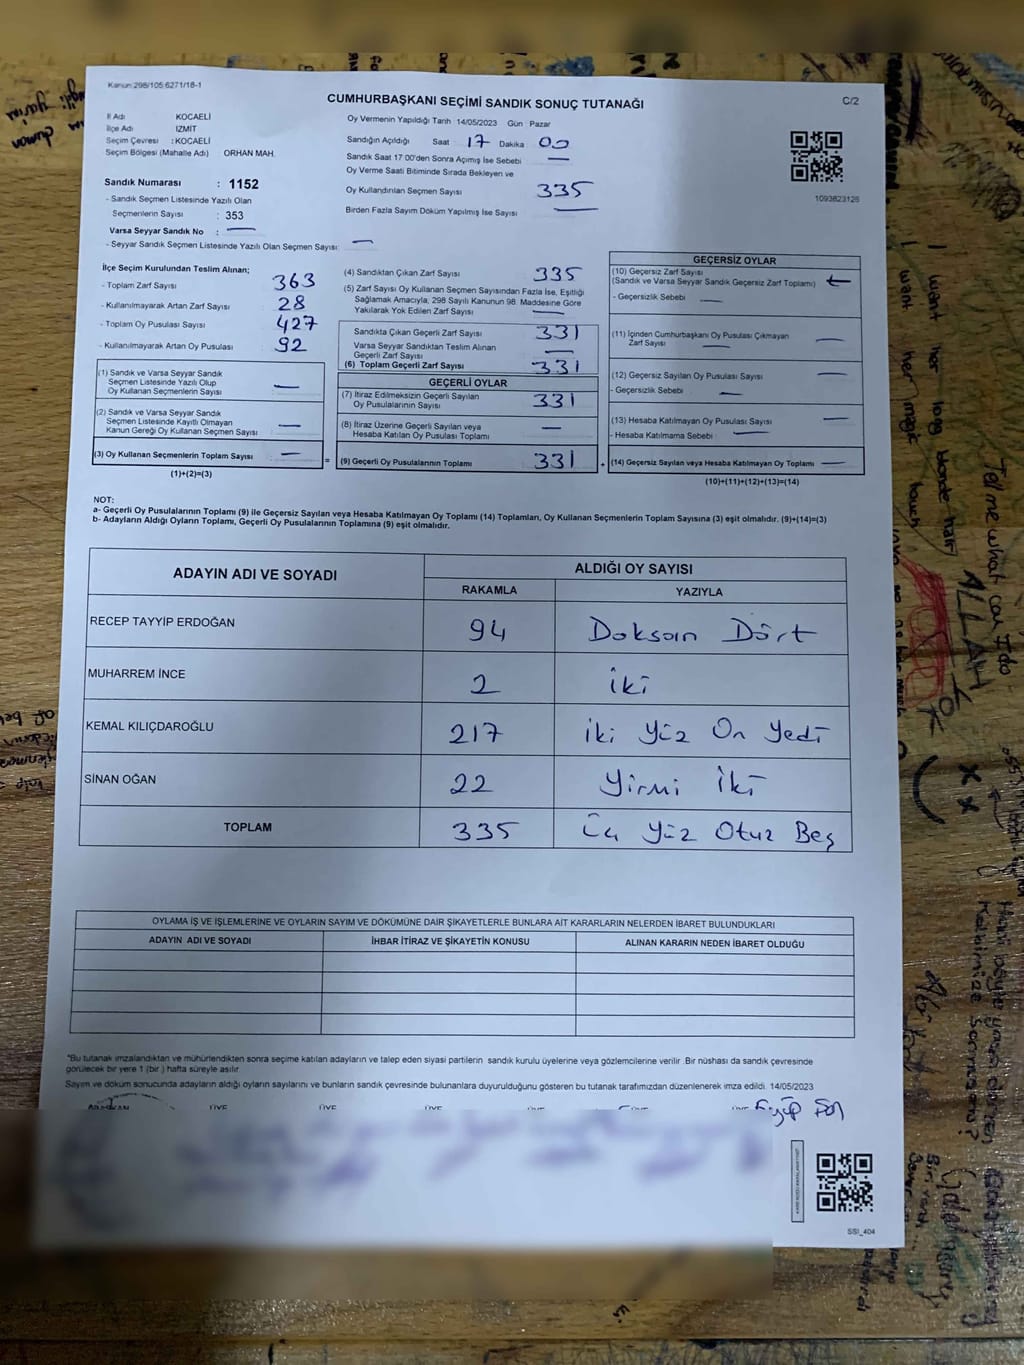 Kanun:298/105:6271/18-1
CUMHURBAŞKANI SEÇİMİ SANDIK SONUÇ TUTANAĞI
C/2
İl Adı KOCAELİ
İlçe Adı İZMİT
Seçim Çevresi :KOCAELİ
Seçim Bölgesi (Mahalle Adı) ORHAN MAH.
Sandık Numarası : 1152
- Sandık Seçmen Listesinde Yazılı Olan
Seçmenlerin Sayısı : 353
Varsa Seyyar Sandık No : —
- Seyyar Sandık Seçmen Listesinde Yazılı Olan Seçmen Sayısı: —
Oy Vermenin Yapıldığı Tarih :14/05/2023 Gün : Pazar
Sandığın Açıldığı Saat : 17 Dakika : 00
Sandık Saat 17:00'den Sonra Açılmış İse Sebebi —
Oy Verme Saati Bitiminde Sırada Bekleyen ve
Oy Kullandırılan Seçmen Sayısı 335
Birden Fazla Sayım Döküm Yapılmış İse Sayısı —
1093823126
İlçe Seçim Kurulundan Teslim Alınan;
- Toplam Zarf Sayısı 363
- Kullanılmayarak Artan Zarf Sayısı 28
- Toplam Oy Pusulası Sayısı 427
- Kullanılmayarak Artan Oy Pusulası 92
(1) Sandık ve Varsa Seyyar Sandık
Seçmen Listesinde Yazılı Olup
Oy Kullanan Seçmenlerin Sayısı —
(2) Sandık ve Varsa Seyyar Sandık
Seçmen Listesinde Kayıtlı Olmayan
Kanun Gereği Oy Kullanan Seçmen Sayısı —
(3) Oy Kullanan Seçmenlerin Toplam Sayısı —
(1)+(2)=(3)
(4) Sandıktan Çıkan Zarf Sayısı 335
(5) Zarf Sayısı Oy Kullanan Seçmen Sayısından Fazla İse, Eşitliği
Sağlamak Amacıyla, 298 Sayılı Kanunun 98. Maddesine Göre
Yakılarak Yok Edilen Zarf Sayısı —
Sandıkta Çıkan Geçerli Zarf Sayısı 331
Varsa Seyyar Sandıktan Teslim Alınan
Geçerli Zarf Sayısı —
(6) Toplam Geçerli Zarf Sayısı 331
GEÇERLİ OYLAR
(7) İtiraz Edilmeksizin Geçerli Sayılan
Oy Pusulalarının Sayısı 331
(8) İtiraz Üzerine Geçerli Sayılan veya
Hesaba Katılan Oy Pusulası Toplamı —
= (9) Geçerli Oy Pusulalarının Toplamı 331 +
GEÇERSİZ OYLAR
(10) Geçersiz Zarf Sayısı
(Sandık ve Varsa Seyyar Sandık Geçersiz Zarf Toplamı)
- Geçersizlik Sebebi : —
(11) İçinden Cumhurbaşkanı Oy Pusulası Çıkmayan
Zarf Sayısı —
(12) Geçersiz Sayılan Oy Pusulası Sayısı —
- Geçersizlik Sebebi : —
(13) Hesaba Katılmayan Oy Pusulası Sayısı —
- Hesaba Katılmama Sebebi : —
(14) Geçersiz Sayılan veya Hesaba Katılmayan Oy Toplamı —
(10)+(11)+(12)+(13)=(14)
NOT:
a- Geçerli Oy Pusulalarının Toplamı (9) ile Geçersiz Sayılan veya Hesaba Katılmayan Oy Toplamı (14) Toplamları, Oy Kullanan Seçmenlerin Toplam Sayısına (3) eşit olmalıdır. (9)+(14)=(3)
b- Adayların Aldığı Oyların Toplamı, Geçerli Oy Pusulalarının Toplamına (9) eşit olmalıdır.
ADAYIN ADI VE SOYADI ALDIĞI OY SAYISI
RAKAMLA YAZIYLA
RECEP TAYYİP ERDOĞAN 94 Doksan Dört
MUHARREM İNCE 2 iki
KEMAL KILIÇDAROĞLU 217 iki Yüz On Yedi
SİNAN OĞAN 22 Yirmi İki
TOPLAM 335 Üç Yüz Otuz Beş
OYLAMA İŞ VE İŞLEMLERİNE VE OYLARIN SAYIM VE DÖKÜMÜNE DAİR ŞİKAYETLERLE BUNLARA AİT KARARLARIN NELERDEN İBARET BULUNDUKLARI
ADAYIN ADI VE SOYADI İHBAR İTİRAZ VE ŞİKAYETİN KONUSU ALINAN KARARIN NEDEN İBARET OLDUĞU
*Bu tutanak imzalandıktan ve mühürlendikten sonra seçime katılan adayların ve talep eden siyasi partilerin sandık kurulu üyelerine veya gözlemcilerine verilir .Bir nüshası da sandık çevresinde
görülecek bir yere 1 (bir ) hafta süreyle asılır.
Sayım ve döküm sonucunda adayların aldığı oyların sayılarını ve bunların sandık çevresinde bulunanlara duyurulduğunu gösteren bu tutanak tarafımızdan düzenlenerek imza edildi. 14/05/2023
BAŞKAN ÜYE ÜYE ÜYE ÜYE ÜYE ÜYE
SSI_404
I want her long blonde hair
I want her magic touch
Tell me what can I do
ALLAH YOK